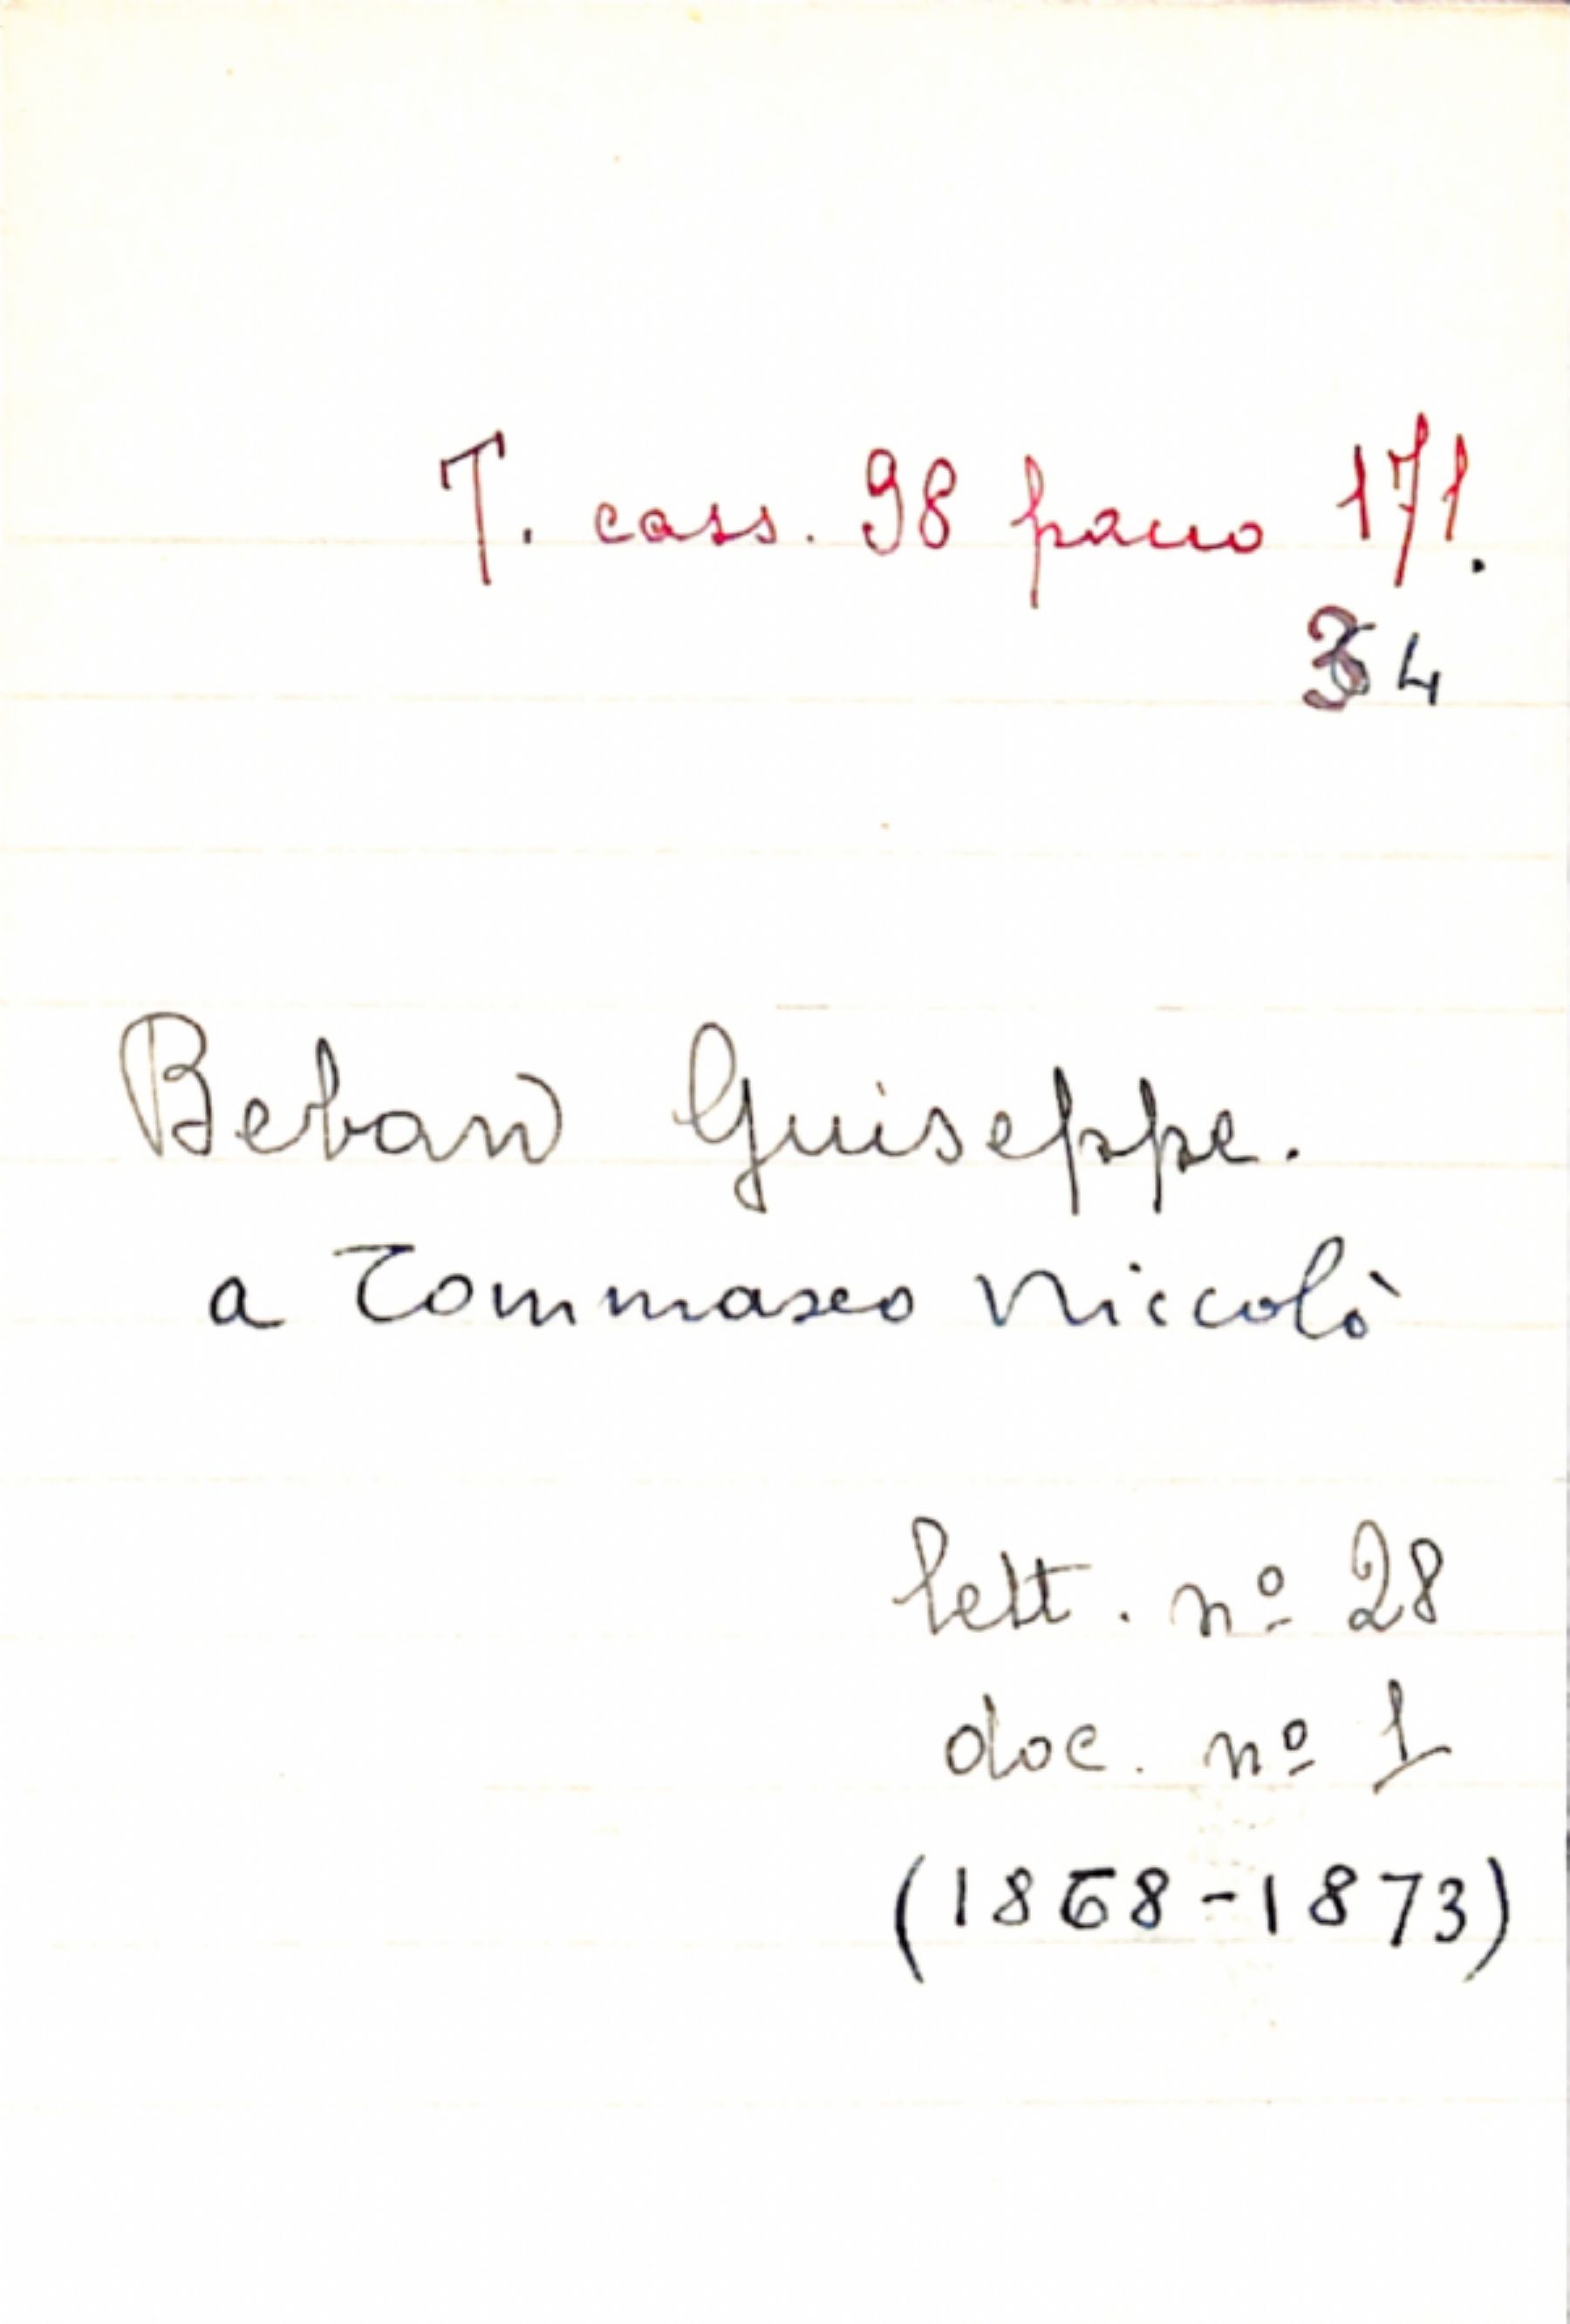 T. cass. 98 pacco 171.
4
Beban Giuseppe.
a Tommaseo Niccolò
lett. nº 28
doc. nº 1
(1868-1873)